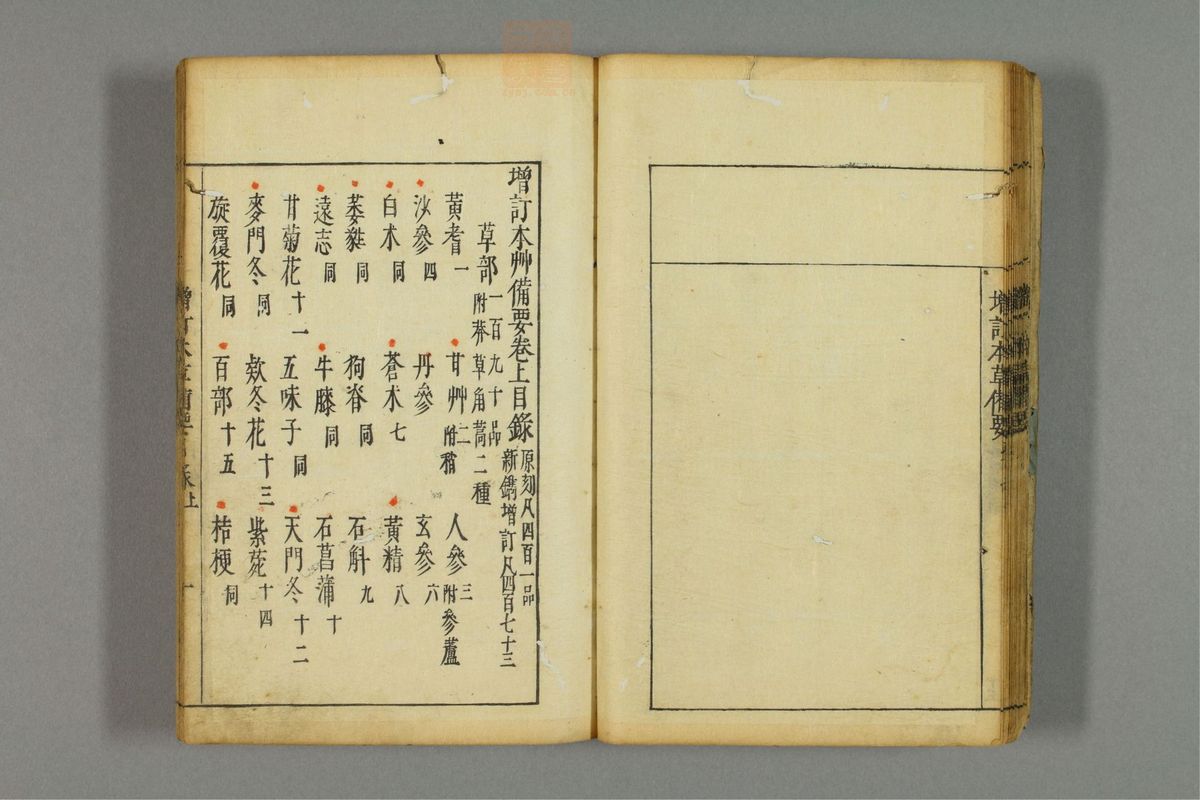 增訂本草備要
增訂本艸備要卷上目錄 原刻凡四百一品 新鐫增訂凡四百七十三
草部 一百九十品 附莽草角蒿二種
黃耆 一 甘艸 二 附稍 人參 三 附參蘆
沙參 四 丹參 玄參 六
白朮 同 蒼朮 七 黃精 八
萎蕤 同 狗脊 同 石斛 九
遠志 同 牛膝 同 石菖蒲 十
甘菊花 十一 五味子 同 天門冬 十二
麥門冬 同 款冬花 十三 紫菀 十四
旋覆花 同 百部 十五 桔梗 同